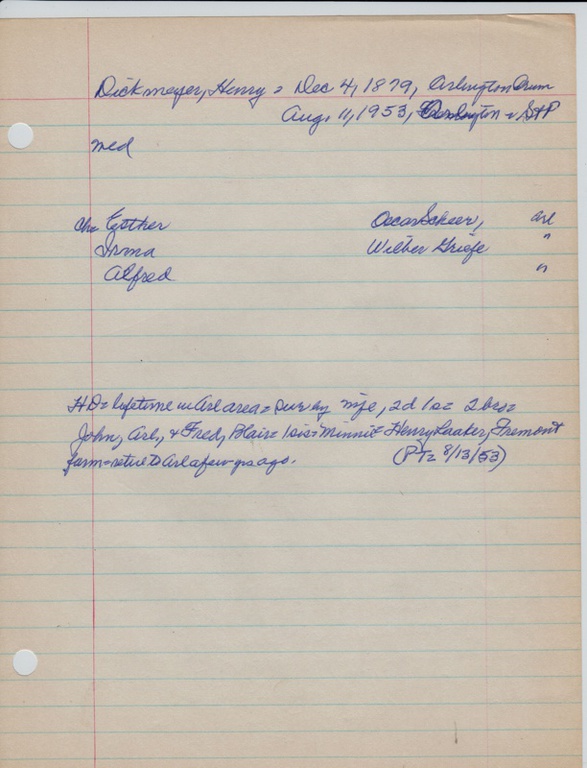 Dickmeyer, Henry = Dec 4, 1879, Arlington
Aug. 11, 1953, Arlington + StP
med
Ch= Esther Oscar Scheer, Arl
Irma Wilber Griefe "
Alfred "
HD= lifetime in Arl area= sur by wife, 2d 1s= 2 bros=
John, Arl, & Fred, Blair= 1 sis= Minnie= Henry Laaker, Fremont
farm= retired to Arl a few yrs ago. (PT= 8/13/53)